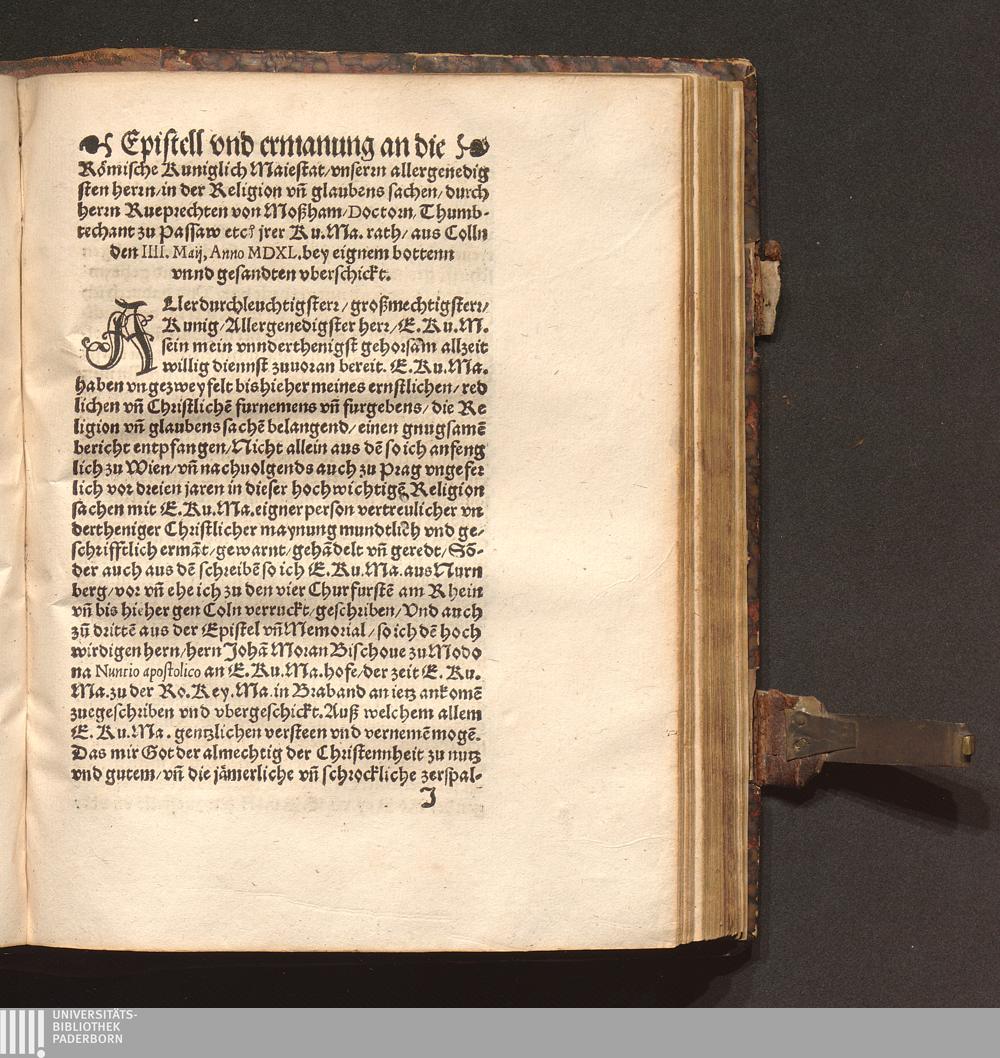 Epistell vnd ermanung an die
Römische Kuniglich Maiestat/vnserrn allergenedig
sten herrn/in der Religion vñ glaubens sachen/durch
herrn Rueprechten von Moßham/Doctorn, Thumb-
techant zu Passaw etc? jrer Ku. Ma. rath/aus Colln
den IIII. Maij, Anno MDXL. bey eignem bottenn
vnnd gesandten vberschickt.
ALlerdurchleuchtigsterr/großmechtigsterr/
Kunig/Allergenedigster herr/E. Ku. M.
sein mein vnnderthenigst gehorsam̄ allzeit
willig diennst zuuoran bereit. E. Ku. Ma.
haben vngezweyfelt bishieher meines ernstlichen/red
lichen vñ Christlichē furnemens vñ furgebens/die Re
ligion vñ glaubens sachē belangend/einen gnugsamē
bericht entpfangen/Nicht allein aus dē so ich anfeng
lich zu Wien/vñ nachuolgends auch zu Prag vngefer
lich vor dreien jaren in dieser hochwichtigē Religion
sachen mit E. Ku. Ma. eigner person vertreulicher vn
dertheniger Christlicher maynung mundtlich vnd ge-
schrifftlich ermāt/gewarnt/gehādelt vñ geredt/Sō-
der auch aus dē schreibē so ich E. Ku. Ma. aus Nurn
berg/vor vñ ehe ich zu den vier Churfurstē am Rhein
vñ bis hieher gen Coln verruckt/geschriben/Vnd auch
zū drittē aus der Epistel vñ Memorial/so ich dē hoch
wirdigen hern/hern Johā Moran Bischoue zu Modo
na Nuntio apostolico an E. Ku. Ma. hofe/der zeit E. Ku.
Ma. zu der Ro. Key. Ma. in Braband an ietz ankomē
zuegeschriben vnd vbergeschickt. Auß welchem allem
E. Ku. Ma. gentzlichen versteen vnd vernemē mogē.
Das mir Got der almechtig der Christennheit zu nutz
vnd gutem/vñ die jāmerliche vñ schrockliche zerspal-
J
UNIVERSITÄTS-
BIBLIOTHEK
PADERBORN